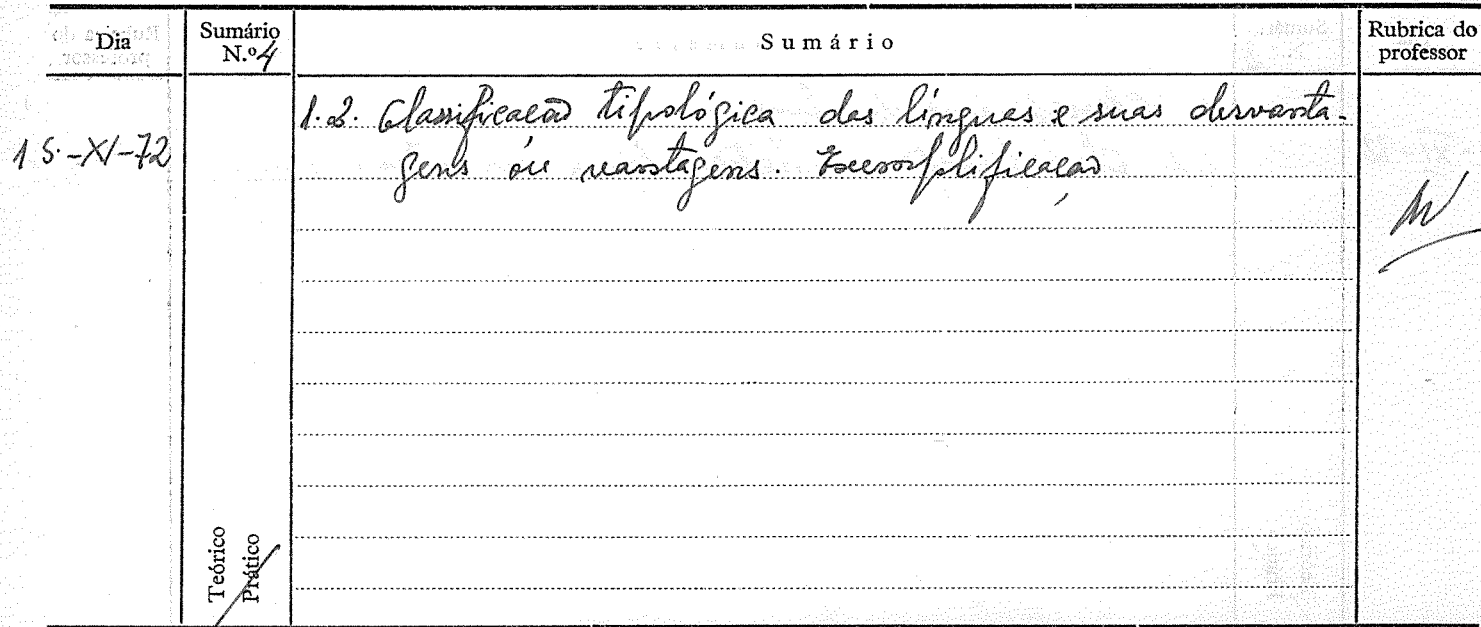 Dia
Sumário
N.º 4
Sumário
Rubrica do
professor
15-XI-72
1.2. Classificação tipológica das línguas e suas desvanta-
gens ou vantagens. Exemplificação
Teórico
Prático